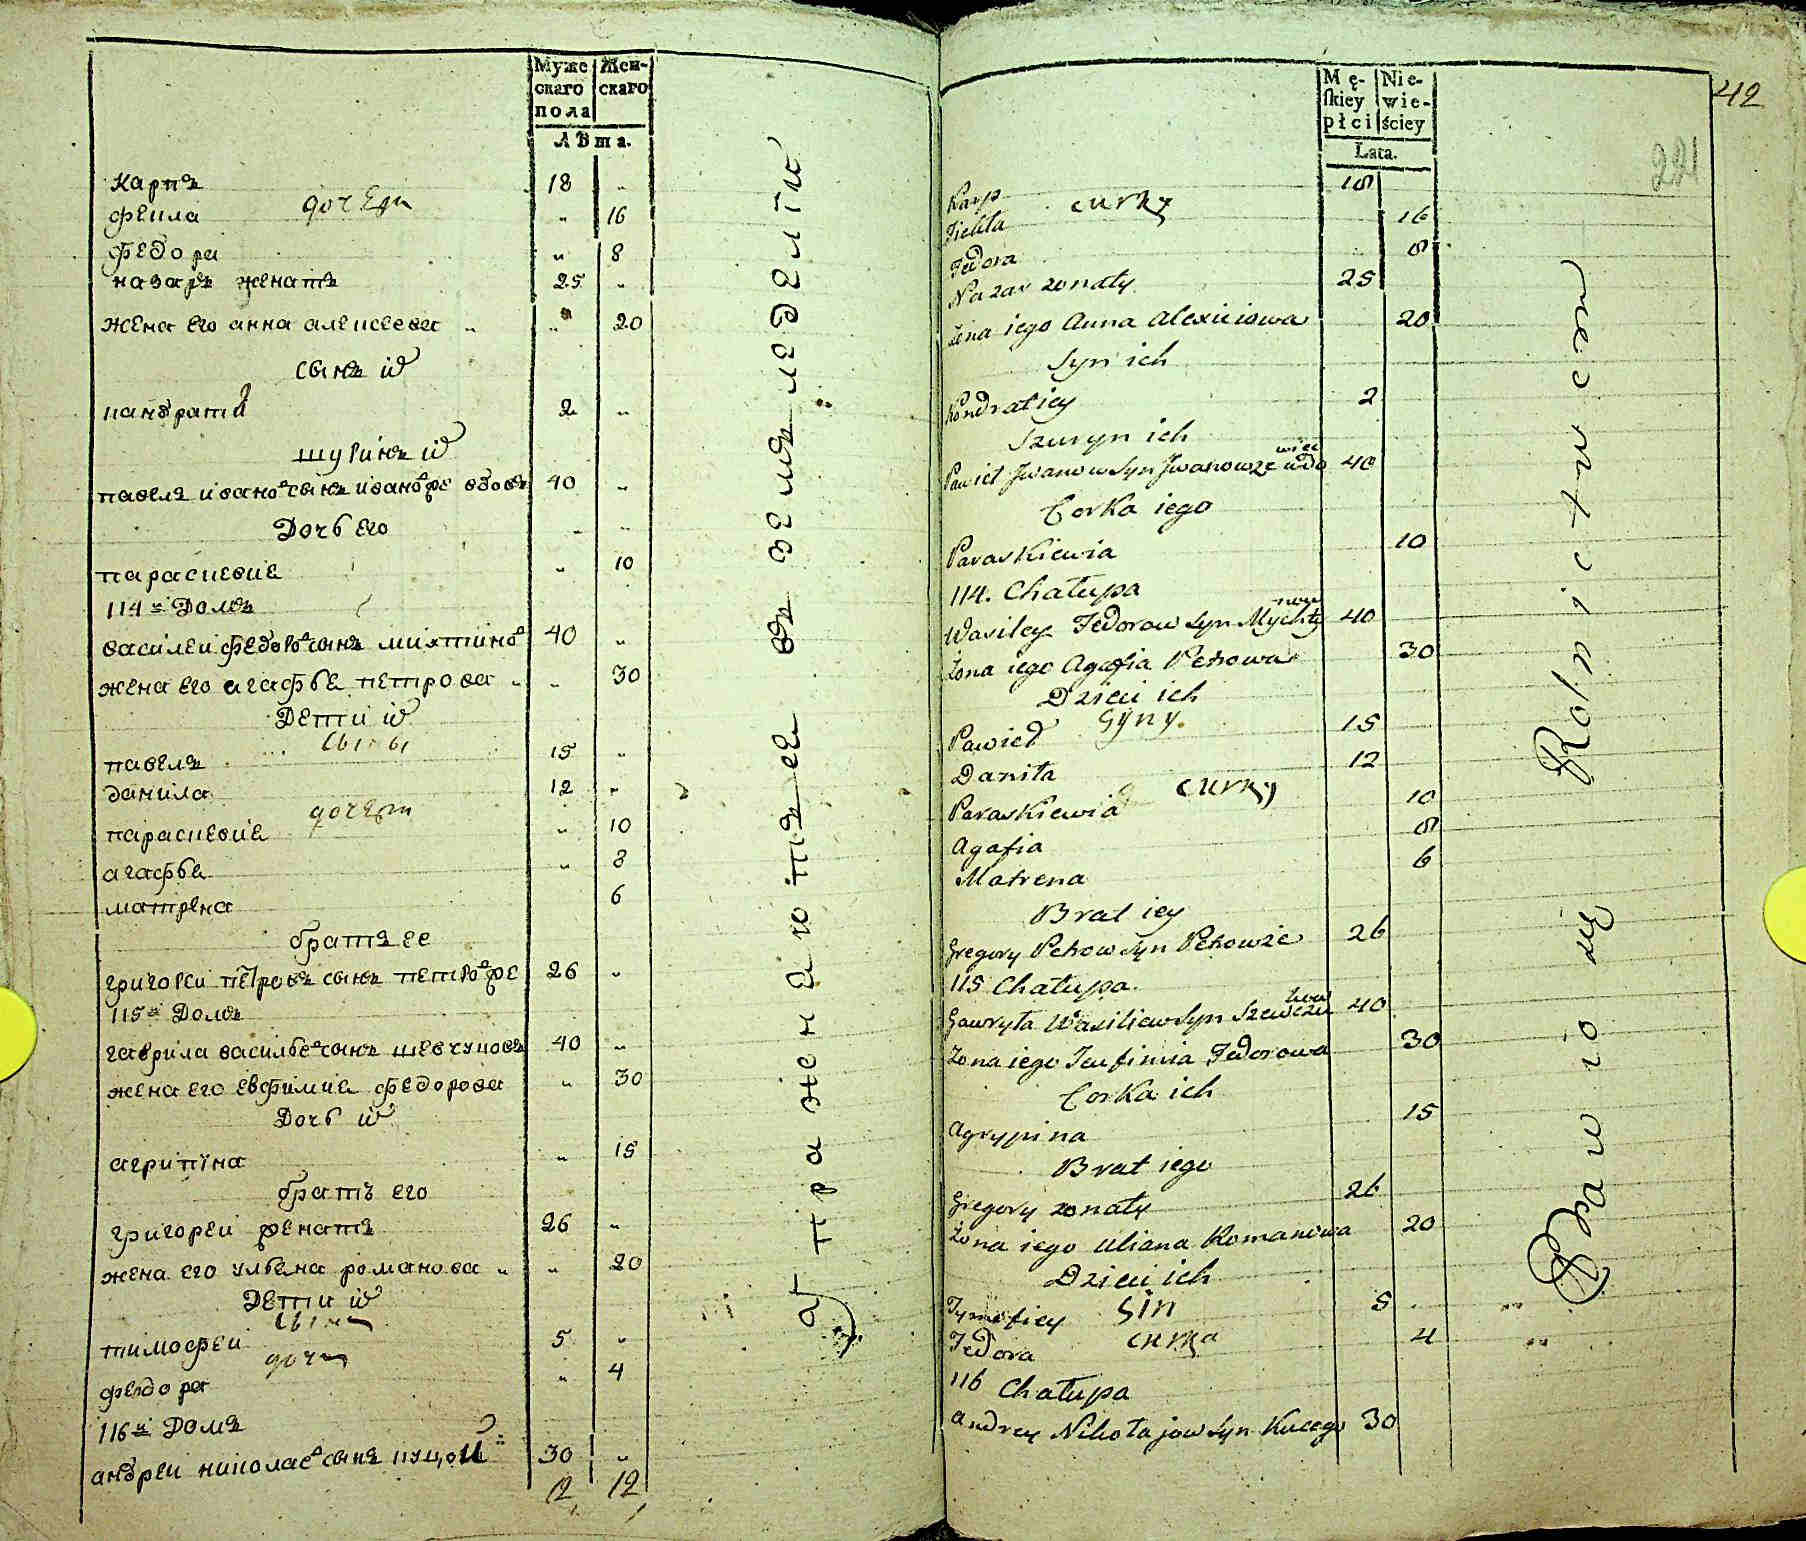 Муже
скаго
пола
Жен-
скаго
Лѣта.
карпъ 18 „
дочери
фекла „ 16
федора „ 8
назаръ женатъ 25 „
жена его анна алексеева „ „ 20
сынъ их
кандратий 2 „
шуринъ их
павелъ иванов сынъ вдовъ 40 „
Дочь его
параскевия „ 10
114й Домъ
василеи федоров сынъ 40 „
жена его агафья петрова „ „ 30
Дети их
сыны
павелъ 15 „
данила 12 „
дочери
параскевия „ 10
агафья „ 8
матрена 6
братъ ее
григореи петровъ сынъ 26 „
115й Домъ
гаврила васильев сынъ шевчуковъ 40 „
жена его евфимия федорова „ 30
Дочь их
агрипина „ 15
братъ его
григореи женатъ 26 „
жена его ульяна романова „ „ 20
Дети их
сын
тимофеи 5 „
дочь
федора „ 4
116й Домъ
андреи николаев сынъ 30 „
12 12
упражняютцеся въ земледелии
42
221
Mę-
skiey
płci
Nie-
wie-
ściey
Lata.
Karp 18
curky
Fiekła 16
Fedora 8
Nazar zonaty 25
żena iego Anna Alexiciowa 20
Syn ich
Kondratiey 2
Szuryn ich
Pawieł Jwanow Syn Jwanowze wdowiec 40
Corka iego
Paraskiewia 10
114. Chałupa
Wasiley Fedorow Syn 40
Zona iego Agafia Petrowa 30
Dzieci ich
Syny.
Pawieł 15
Daniła 12
curky
Paraskiewia 10
Agafia 8
Matrena 6
Brat iey
Gregory Petrow Syn Petrowże 26
115 Chałupa.
Gawryła Wasiliew Syn 40
Zona iego Teufimia Fedorowa 30
Corka ich
Agrypina 15
Brat iego
Gregory zonaty 26
Zona iego Uliana Romanowa 20
Dzieci ich
Sin
Tymofiey 5
curka
Fedora 4
116 Chałupa
Andrey Nikołajow Syn 30
Bawio się Rolnictwem